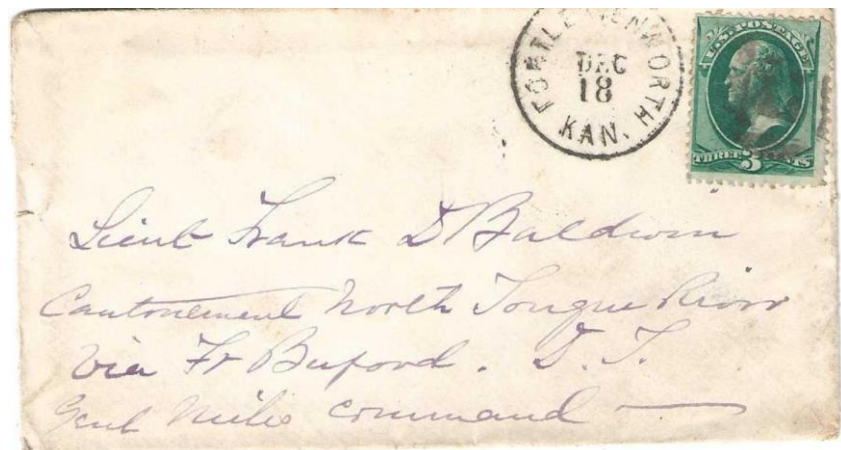 FORT LEAVENWORTH
DEC
18
KAN.
U.S. POSTAGE
THREE 3 CENTS
Lieut Frank D Baldwin
Cantonement North Tongue River
Via Ft Buford. D. T.
Genl Miles Command